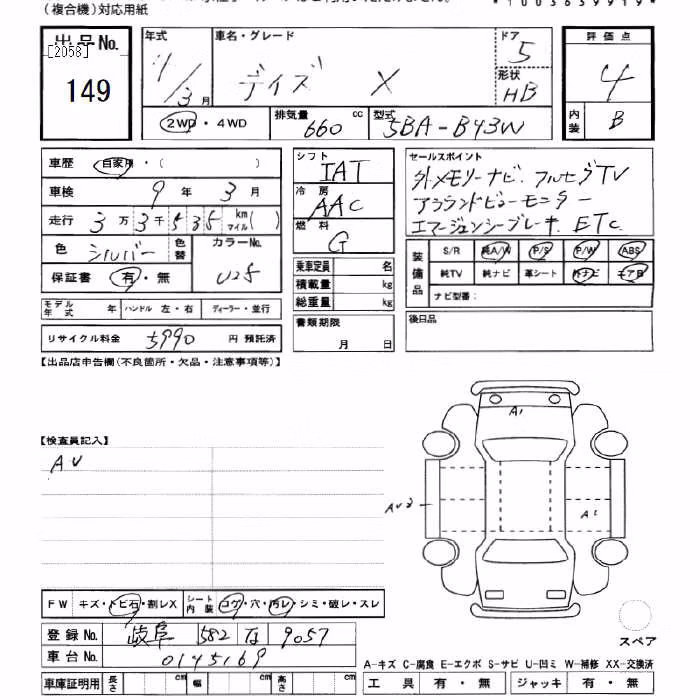 (複合機)対応用紙
*1003639919*
出品No. [2058] 149
年式 11/3月
車名・グレード デイズ X
ドア 5
形状 HB
評価点 4
内装 B
2WD・4WD
排気量 660 cc
型式 5BA-B43W
車歴 自家用・( )
車検 9年 3月
走行 3万3千535 km マイル( )
色 シルバー 色替 カラーNo. U25
保証書 有・無
シフト IAT
冷房 AAC
燃料 G
乗車定員 名
積載量 kg
総重量 kg
セールスポイント
外メモリーナビ. フルセグTV
アラウンドビューモニター
エマージェンシーブレーキ. ETC.
装備品 S/R 純A/W P/S P/W ABS
純TV 純ナビ 革シート 外ナビ エアB
ナビ型番:
モデル年式 年 ハンドル 左・右 ディーラー・並行
リサイクル料金 5990 円 預託済
書類期限 月 日
後日品
【出品店申告欄(不良箇所・欠品・注意事項等)】
【検査員記入】
AU
A1
AU2
A1
FW キズ・トビ石・割レX シート内装 コゲ・穴・汚レ・シミ・破レ・スレ
登録No. 岐阜 582 な 9057
車台No. 0145169
スペア
A-キズ C-腐食 E-エクボ S-サビ U-凹ミ W-補修 XX-交換済
車庫証明用 長さ cm 幅 cm 高さ cm
工具 有・無 ジャッキ 有・無